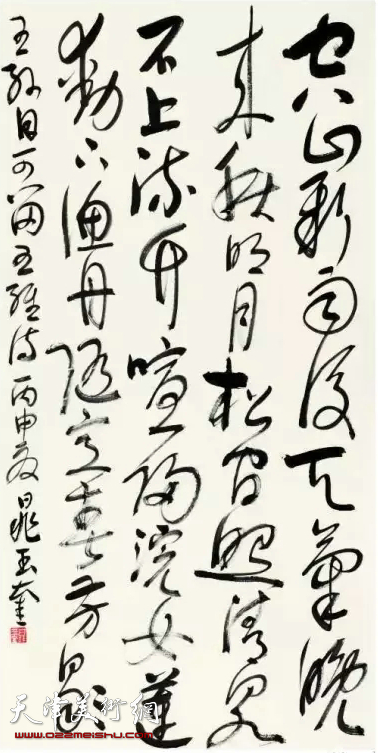 空山新雨後天氣晚
来秋明月松间照清泉
石上流竹喧歸浣女蓮
動下漁舟随意春芳歇
王孫自可留王維詩丙申夏晁玉奎
天津美術網
www.022meishu.com